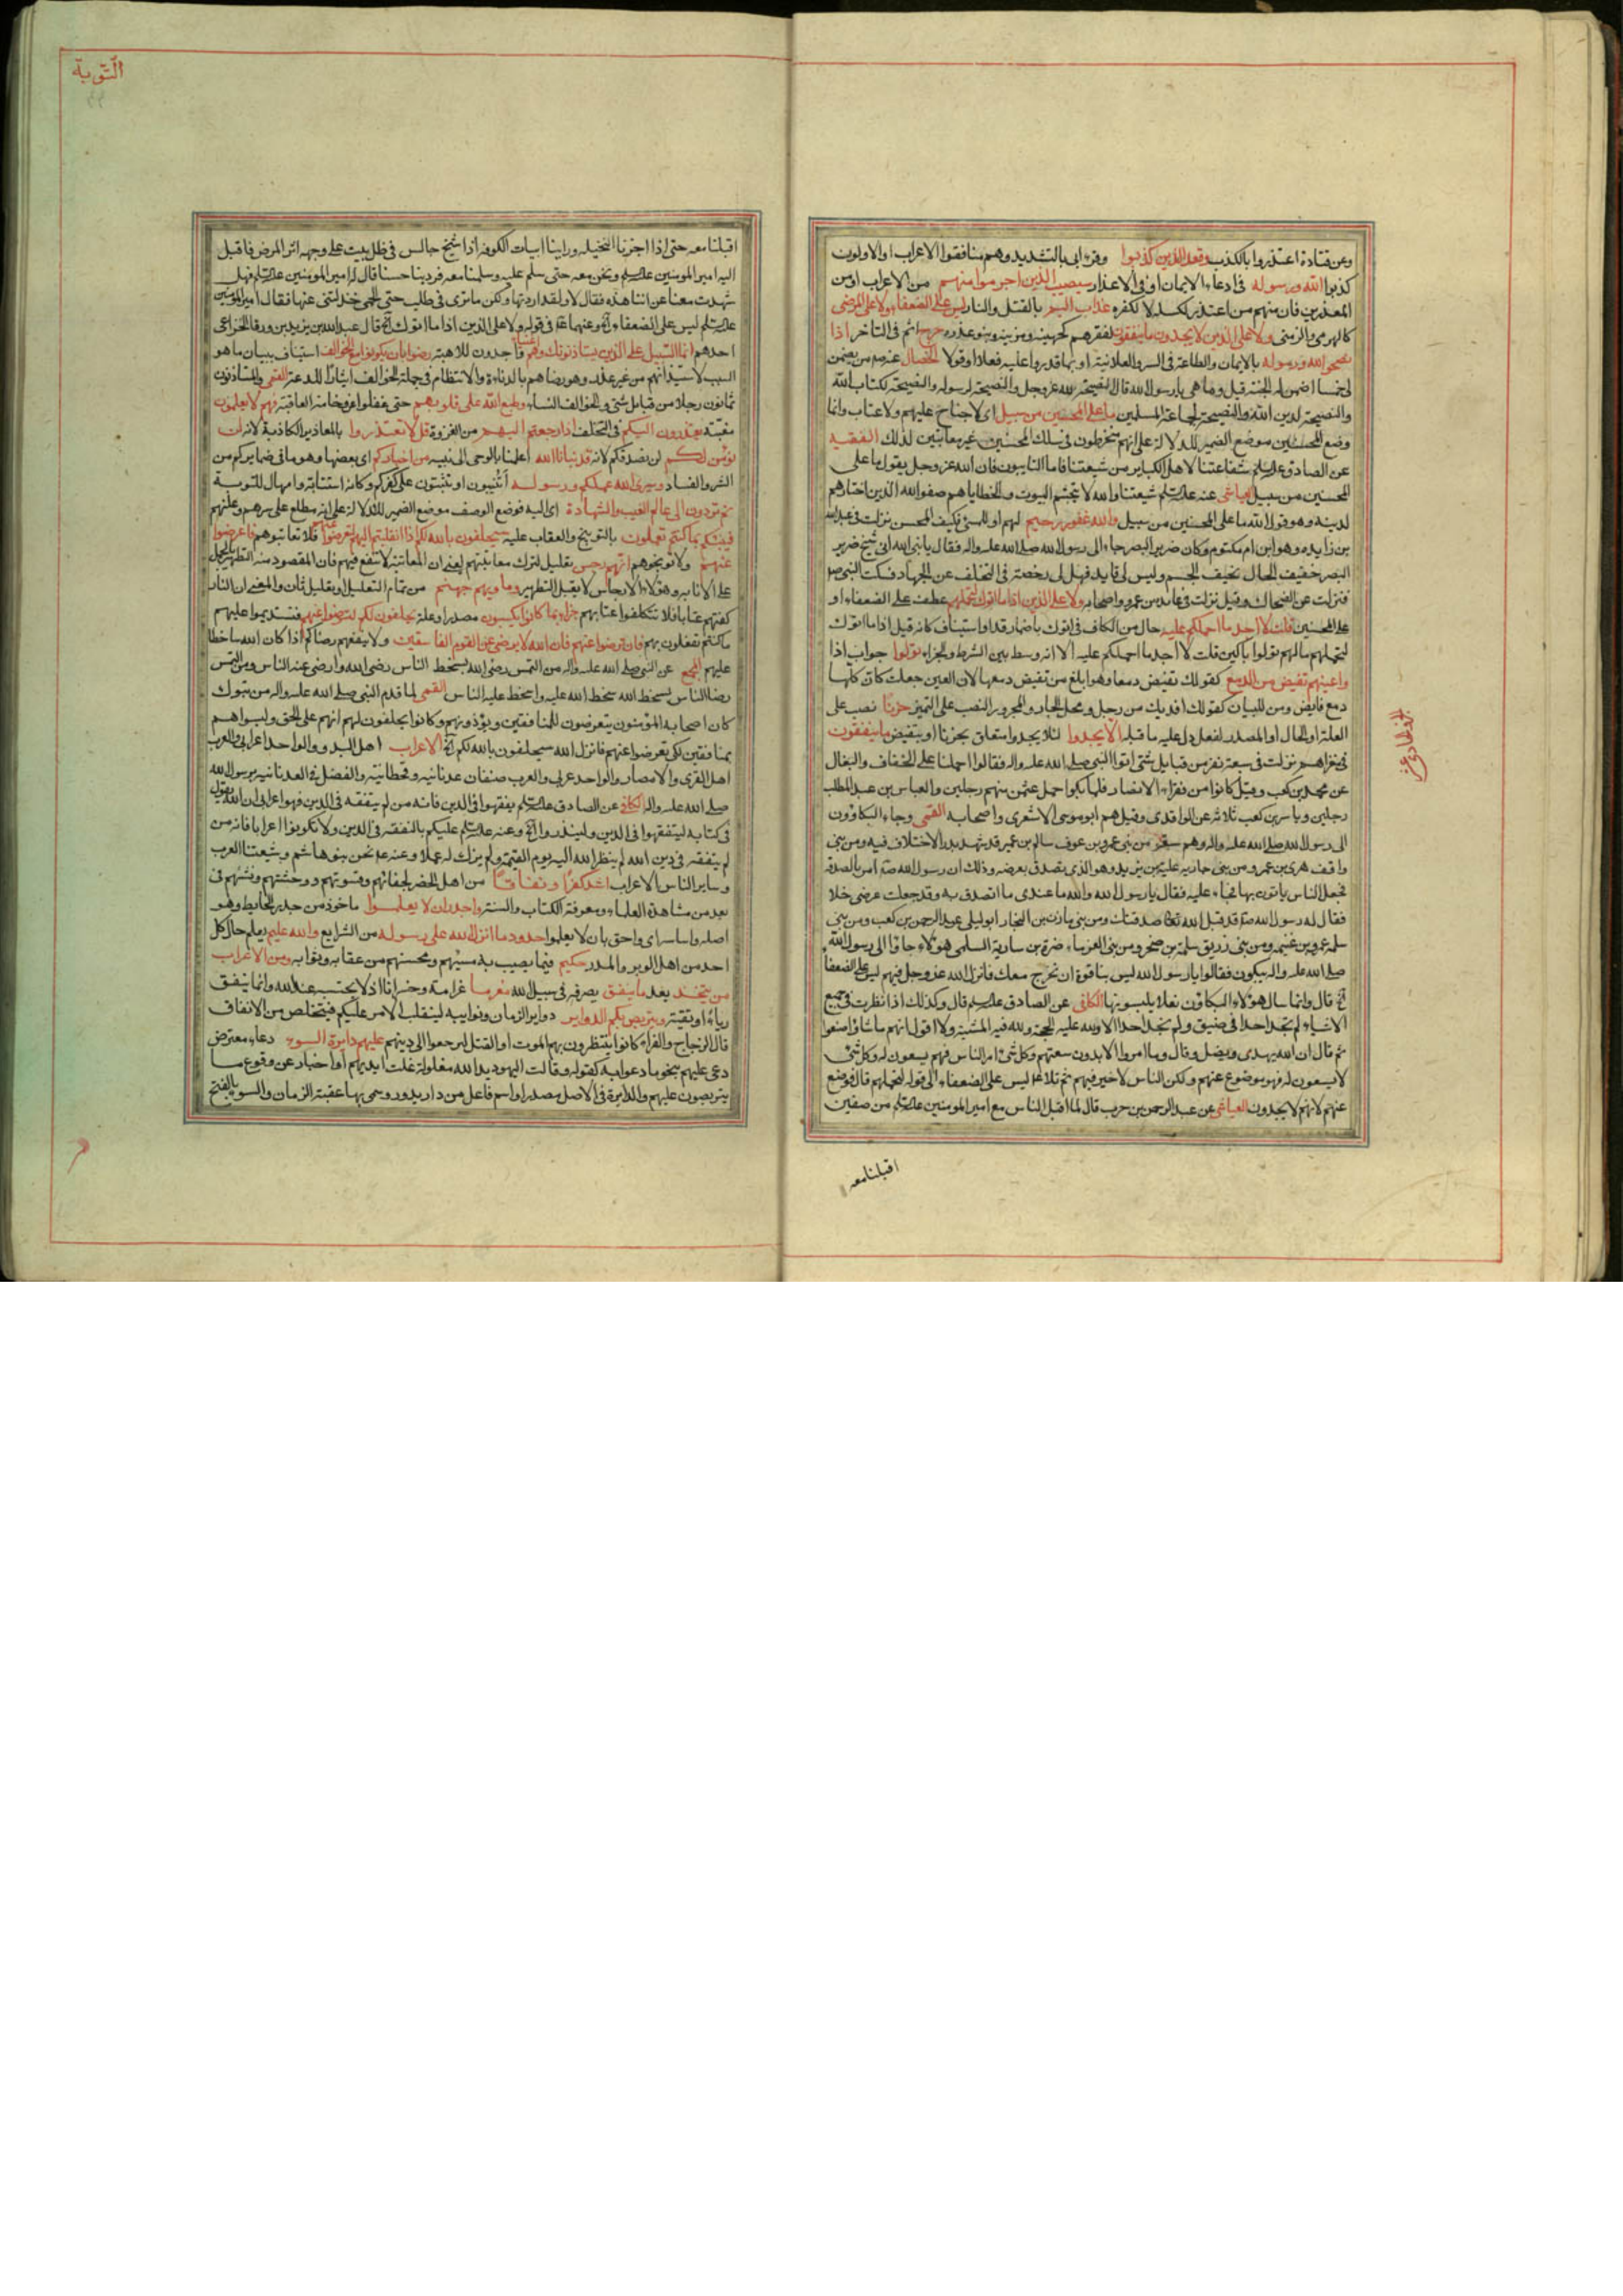 وعن قتادة اعتذروا بالكذب وقعد الذين كذبوا وقرء ابى بالتشديد وهم منافقوا الاعراب او الاولون
كذبوا الله ورسوله فى ادعاء الايمان او فى الاعذار سيصيب الذين اجرموا منهم من الاعراب او من
المعذرين فان منهم من اعتذر لكسله لا لكفره عذاب اليم بالقتل والنار ليس على الضعفاء ولا على المرضى
كالهرمى والزمنى ولا على الذين لا يجدون ما ينفقون لفقرهم كجهينه ومزينه وبنو عذره حرج اثم فى التاخر اذا
نصحوا لله ورسوله بالايمان والطاعة فى السر والعلانية او بما قدروا عليه فعلا او قولا الخصال عنه ص من يضمن
لى خمسا اضمن له الجنة قيل وما هى يا رسول الله قال النصيحة لله عز وجل والنصيحة لرسوله والنصيحة لكتاب الله
والنصيحة لدين الله والنصيحة لجماعة المسلمين ما على المحسنين من سبيل اى لا جناح عليهم ولا عتاب وانما
وضع المحسنين موضع الضمير للدلالة على انهم منخرطون فى سلك المحسنين غير معاتبين لذلك الفقيه
عن الصادق ع شفاعتنا لاهل الكباير من شيعتنا فاما التايبون فان الله عز وجل يقول ما على
المحسنين من سبيل العياشى عنه ع شيعتنا والله لا تجشم البيوت والخطايا هم صفو الله الذين اختارهم
لدينه وهو قول الله ما على المحسنين من سبيل والله غفور رحيم لهم او للمسئ فكيف المحسن نزلت فى عبد الله
بن زايده وهو ابن ام مكتوم وكان ضرير البصر جاء الى رسول الله صلى الله عليه واله فقال يا نبى الله انى شيخ ضرير
البصر خفيف الحال نحيف الجسم وليس لى قايد فهل لى رخصة فى التخلف عن الجهاد فسكت النبى ص
فنزلت عن الضحاك وقيل نزلت فى عايذ بن عمرو واصحابه ولا على الذين اذا ما اتوك لتحملهم عطف على الضعفاء او
على المحسنين قلت لا اجد ما احملكم عليه حال من الكاف فى اتوك باضمار قد او استيناف كانه قيل اذا ما اتوك
لتحملهم ما لهم تولوا باكين قلت لا اجد ما احملكم عليه الا انه وسط بين الشرط والجزاء تولوا جواب اذا
واعينهم تفيض من الدمع كقولك تفيض دمعا وهو ابلغ من تفيض دمعها لان العين جعلت كان كلها
دمع فايض ومن للبيان كقولك افديك من رجل ومحل الجار والمجرور النصب على التميز حزنا نصب على
العلة او الحال او المصدر لفعل دل عليه ما قبله الا يجدوا لئلا يجدوا متعلق بحزنا او بتفيض ما ينفقون
فى غزاهم نزلت فى سبعة نفر من قبايل شتى اتوا النبى صلى الله عليه واله فقالوا احملنا على الخفاف والبغال
عن محمد بن كعب وقيل كانوا من فقراء الانصار فلما بكوا حمل عثمن منهم رجلين والعباس بن عبد المطلب
رجلين ويا سر بن كعب ثلاثه عن الواقدى وقيل هم ابو موسى الاشعرى واصحابه القمى وجاء البكاؤن
الى رسول الله صلى الله عليه واله وهم سبعة من بنى عمرو بن عوف سالم بن عمير قد شهد بدرا لا اختلاف فيه ومن بنى
واقف هرمى بن عمرو ومن بنى حاريه عليه بن يزيد وهو الذى تصدق بعرضه وذلك ان رسول الله ص امر بالصدقة
فجعل الناس ياتون بها فجاء عليه فقال يا رسول الله والله ما عندى ما اتصدق به وقد جعلت عرضى حلا
فقال له رسول الله ص قد قبل الله صدقتك ومن بنى مازن بن النجار ابو ليلى عبد الرحمن بن كعب ومن بنى
سلمة عمرو بن غنيمه ومن بنى زريق سلمة بن صخر ومن بنى العرباء ضرة بن سارية السلمى هؤلاء جاؤا الى رسول الله
صلى الله عليه واله يبكون فقالوا يا رسول الله ليس بنا قوة ان نخرج معك فانزل الله عز وجل فيهم ليس على الضعفاء
الخ قال وانما سال هؤلاء البكاؤن نعلا يلبسونها الكافى عن الصادق ع قال وكذلك اذا نظرت فى جميع
الاشياء لم تجد احدا فى ضيق ولم تجد احدا الا ولله عليه الحجة ولله فيه المشية ولا اقول انهم ما شاؤا صنعوا
ثم قال ان الله يهدى ويضل وقال وما امروا الا بدون سعتهم وكل شئ امر الناس فهم يسعون له وكل شئ
لا يسعون له فهو موضوع عنهم ولكن الناس لا خير فيهم ثم تلا ع ليس على الضعفاء الى قوله لتحملهم قال فوضع
عنهم لانهم لا يجدون العياشى عن عبد الرحمن بن حرب قال لما اقبل الناس مع امير المومنين ع من صفين
اقبلنا معه
التوبة
اقبلنا معه حتى اذا اجزنا النخيله وراينا ابيات الكوفه اذا شيخ جالس فى ظل بيت على وجهه اثر المرض فاقبل
اليه امير المومنين ع ونحن معه حتى سلم عليه وسلمنا معه فرد ردا حسنا قال له امير المومنين ع فهل
شهدت معنا غزاتنا هذه فقال لا ولقد اردتها ولكن ما ترى فى طلب حتى الحمى خذلتنى عنها فقال امير المومنين
ع ليس على الضعفاء الخ وعنهما ع فى قوله ولا على الذين اذا ما اتوك الخ قال عبد الله بن يزيد بن ورقا الخزاعى
احدهم انما السبيل على الذين يستاذنونك وهم اغنياء واجدون للاهبة رضوا بان يكونوا مع الخوالف استيناف ببيان ما هو
السبب لاستيذانهم من غير عذر وهو رضاهم بالدناءة والانتظام فى جملة الخوالف ايثارا للدعة القمى والمستاذنون
ثمانون رجلا من قبايل شتى والخوالف النساء وطبع الله على قلوبهم حتى غفلوا عن وخامة العاقبة فهم لا يعلمون
مغبته يعتذرون اليكم فى التخلف اذا رجعتم اليهم من الغزوة قل لا تعتذروا بالمعاذير الكاذبة لانه لن
نؤمن لكم لن نصدقكم لانه قد نبانا الله اعلمنا بالوحى الى نبيه من اخباركم اى بعضها وهو ما فى ضمايركم من
الشر والفساد وسيرى الله عملكم ورسوله أتتيبون او تثبتون على كفركم وكانه استتابة وامهال للتوبة
ثم تردون الى عالم الغيب والشهادة اى اليه فوضع الوصف موضع الضمير للدلالة على انه مطلع على سرهم وعلنهم
فينبئكم بما كنتم تعملون بالتوبيخ والعقاب عليه سيحلفون بالله لكم اذا انقلبتم اليهم لتعرضوا فلا تعاتبوهم فاعرضوا
عنهم ولا توبخوهم انهم رجس تعليل لترك معاتبتهم يعنى ان المعاتبة لا تنفع فيهم فان المقصود منه التطهير بالحمل
على الانابه وهؤلاء الارجاس لا يقبل التطهير وماويهم جهنم من تمام التعليل او تعليل ثان والمعنى ان النار
كفتهم عتابا فلا تتكلفوا عتابهم جزاء بما كانوا يكسبون مصدر او علة يحلفون لكم لترضوا عنهم فتستديموا عليهم
ما كنتم تفعلون بهم فان ترضوا عنهم فان الله لا يرضى عن القوم الفاسقين ولا ينفعهم رضاكم اذا كان الله ساخطا
عليهم المجمع عن النبى صلى الله عليه واله من التمس رضى الله بسخط الناس رضى الله وارضى عنه الناس ومن التمس
رضا الناس بسخط الله سخط الله عليه واسخط عليه الناس القمى لما قدم النبى صلى الله عليه واله من تبوك
كان اصحابه المؤمنون يتعرضون للمنافقين ويؤذونهم وكانوا يحلفون لهم انهم على الحق وليسوا هم
بمنافقين لكى يعرضوا عنهم فانزل الله سيحلفون بالله لكم الخ الاعراب اهل البدو والواحد اعرابى والعرب
اهل القرى والامصار والواحد عربى والعرب صنفان عدنانيه وقحطانية والفضل فى العدنانيه برسول الله
صلى الله عليه واله الكافى عن الصادق ع تفقهوا فى الدين فانه من لم يتفقه فى الدين فهو اعرابى ان الله يقول
فى كتابه ليتفقهوا فى الدين ولينذروا الخ وعنه ع عليكم بالتفقه فى الدين ولا تكونوا اعرابا فانه من
لم يتفقه فى دين الله لم ينظر الله اليه يوم القيمة ولم يزك له عملا وعنه ع نحن بنو هاشم وشيعتنا العرب
وساير الناس الاعراب اشد كفرا ونفاقا من اهل الحضر لجفائهم وقسوتهم ووحشتهم ونشهم فى
بعد من مشاهدة العلماء ومعرفة الكتاب والسنة واجدر ان لا يعلموا ماخوذ من جدر الحايط وهو
اصله واساسه اى واحق بان لا يعلموا حدود ما انزل الله على رسوله من الشرايع والله عليم يعلم حال كل
احد من اهل الوبر والمدر حكيم فيما يصيب به مسيئهم ومحسنهم من عقابه وثوابه ومن الاعراب
من يتخذ يعد ما ينفق يصرفه فى سبيل الله مغرما غرامة وخسرانا اذ لا يحتسبه عند الله وانما ينفق
رياء او تقيته ويتربص بكم الدواير دواير الزمان ونوايبه لينقلب الامر عليكم فيتخلص من الانفاق
قال الزجاج والفراء كانوا ينتظرون بهم الموت او القتل ليرجعوا الى دينهم عليهم دايرة السوء دعاء معترض
دعى عليهم بنحو ما دعوا به كقوله وقالت اليهود يد الله مغلولة غلت ايديهم او اخبار عن وقوع ما
يتربصون عليهم والدايرة فى الاصل مصدر او اسم فاعل من دار يدور وسمى بها عقبة الزمان والسوء بالفتح